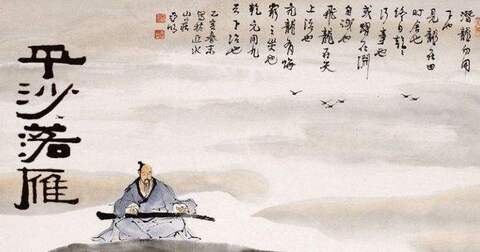 潛龍勿用
下也
見龍在田
時舍也
終日乾乾
行事也
或躍在淵
自試也
飛龍在天
上治也
亢龍有悔
窮之災也
乾元用九
天下治也
乙亥春末
寫於近水
山莊
亞明
平沙落雁